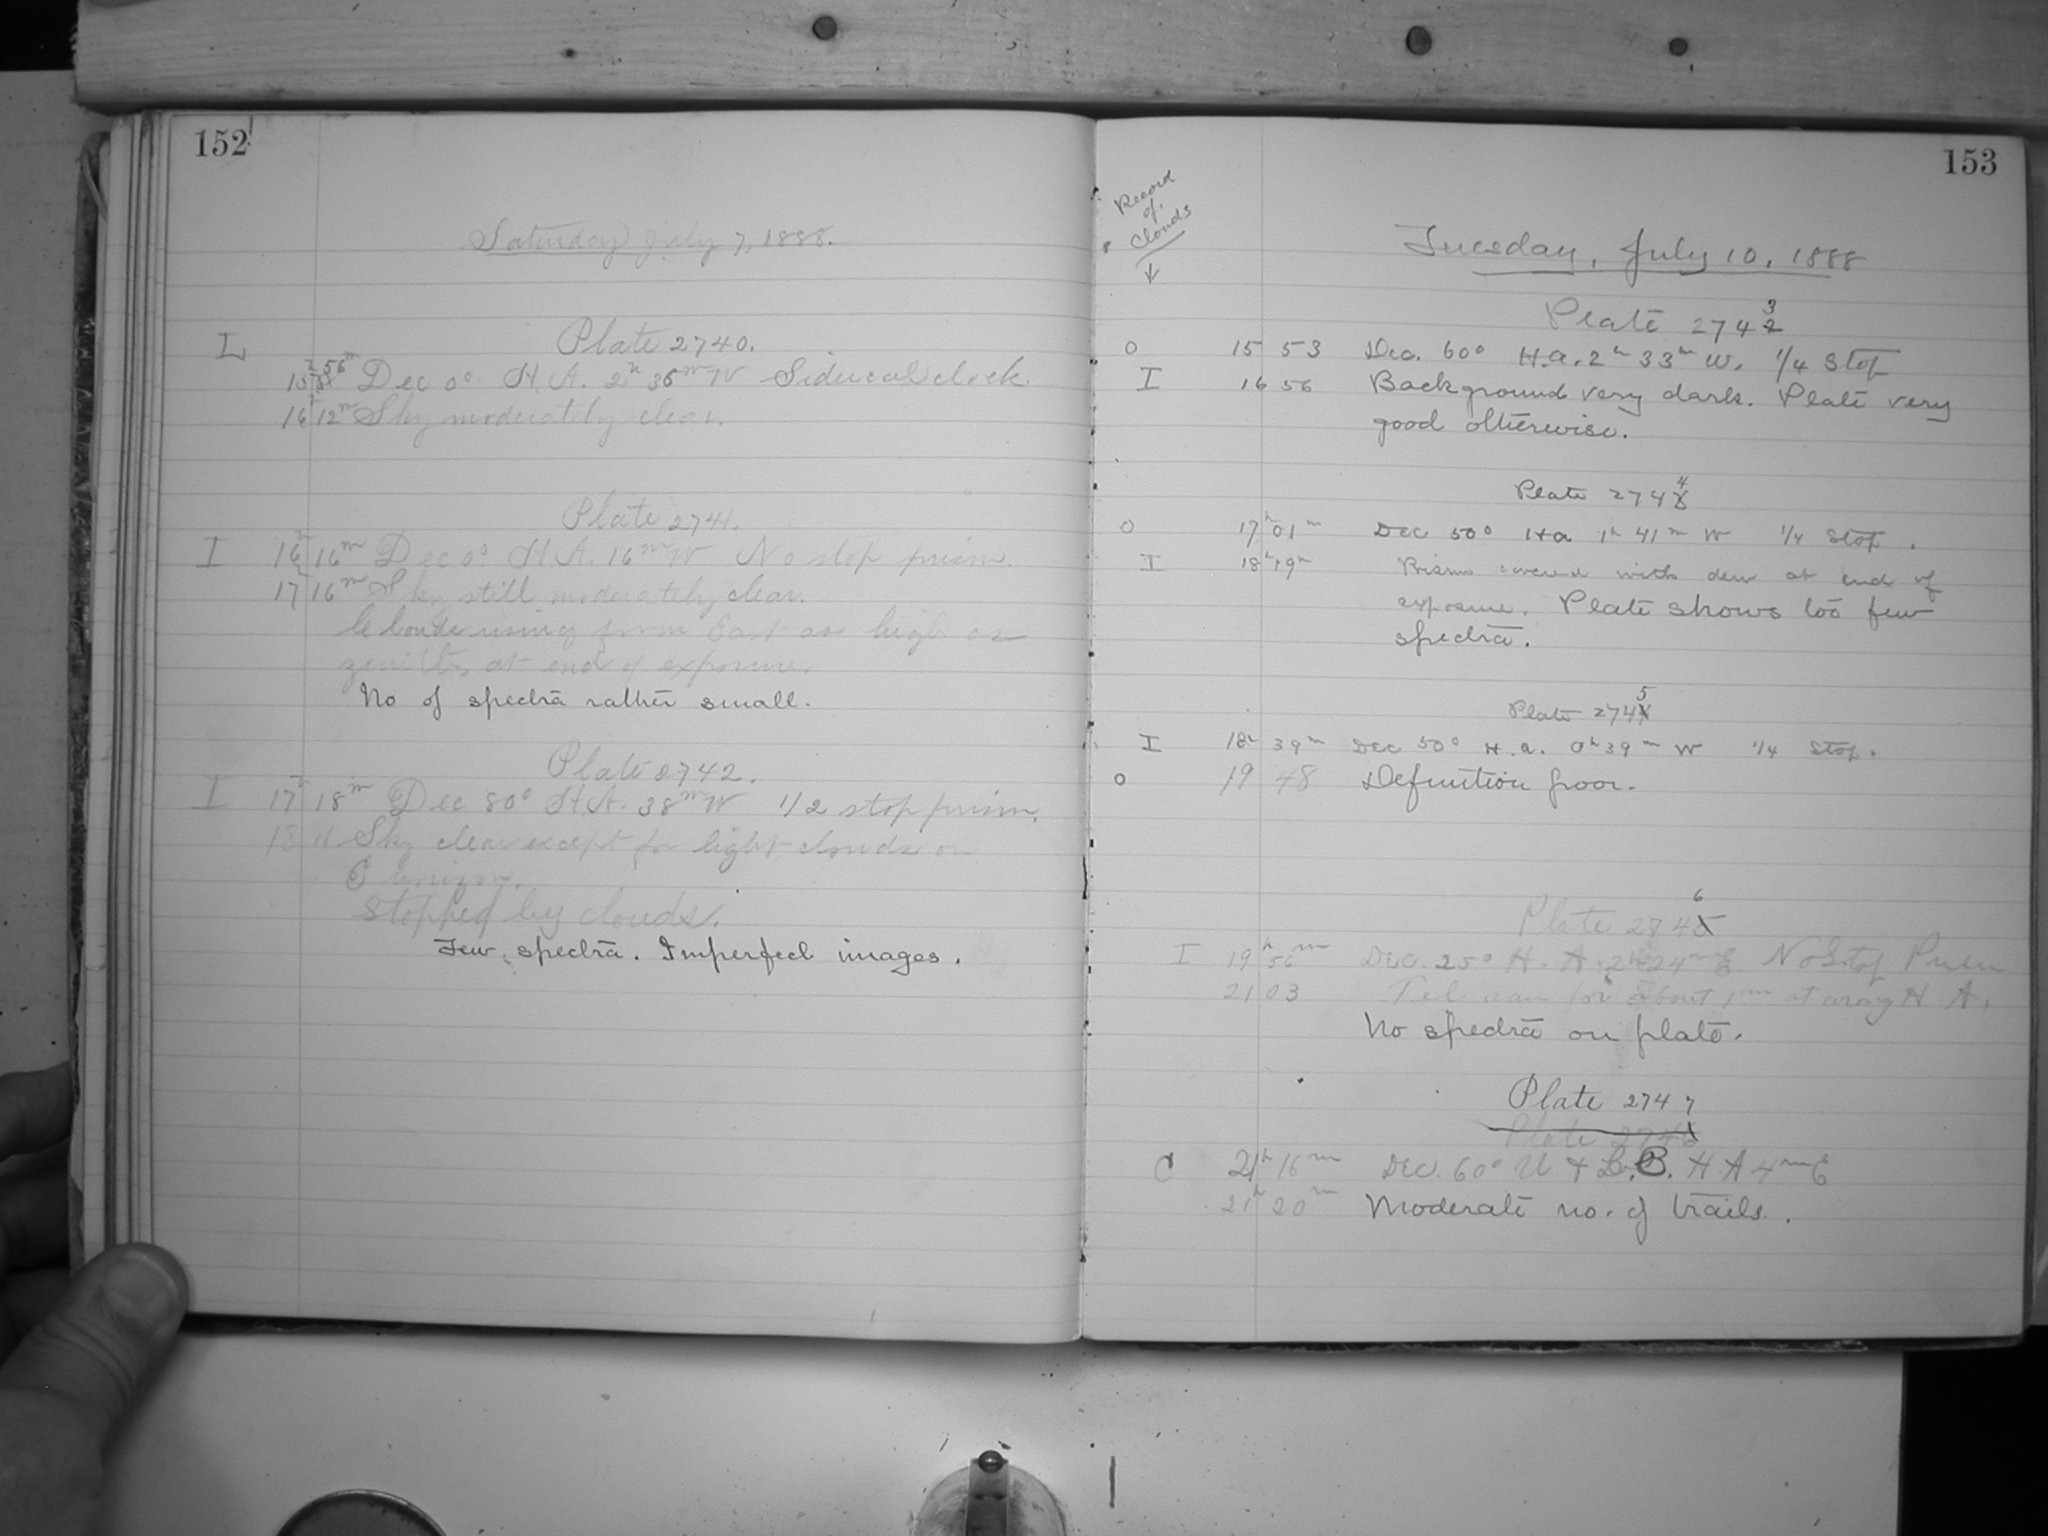 152
Saturday July 7, 1888.
Plate 2740.
I 15 56m Dec 0° H.A. 2h 36m W Sidereal clock.
16 12m Sky moderately clear.
Plate 2741.
I 16h 16m Dec 0° H.A. 16m W No stop prism.
17 16m Sky still moderately clear.
Clouds rising from East as high as
zenith, at end of exposure.
No of spectra rather small.
Plate 2742.
I 17h 18m Dec 80° H.A. 38m W 1/2 stop prism.
18 11 Sky clear except for light clouds on
E horizon.
Stopped by clouds.
Few spectra. Imperfect images.
153
Record
of
Clouds
↓
Tuesday, July 10, 1888
Plate 2743
0 15 53 Dec. 60° H.a. 2h 33m W. 1/4 Stop
I 16 56 Background very dark. Plate very
good otherwise.
Plate 2744
0 17h 01m Dec 50° Ha 1h 41m W 1/4 Stop.
I 18h 19m Prism covered with dew at end of
exposure. Plate shows too few
spectra.
Plate 2745
I 18h 39m Dec 50° H.a. 0h 39m W 1/4 Stop.
0 19 48 Definition poor.
Plate 2746
I 19h 56m Dec. 25° H.A. 2h 24m E No Stop Prism
21 03 Tel ran for about 1m at wrong H.A.
No spectra on plate.
Plate 2747
Plate 2746
C 21h 16m Dec. 60° U & L.B. H A 4m E
21h 20m Moderate no. of trails.